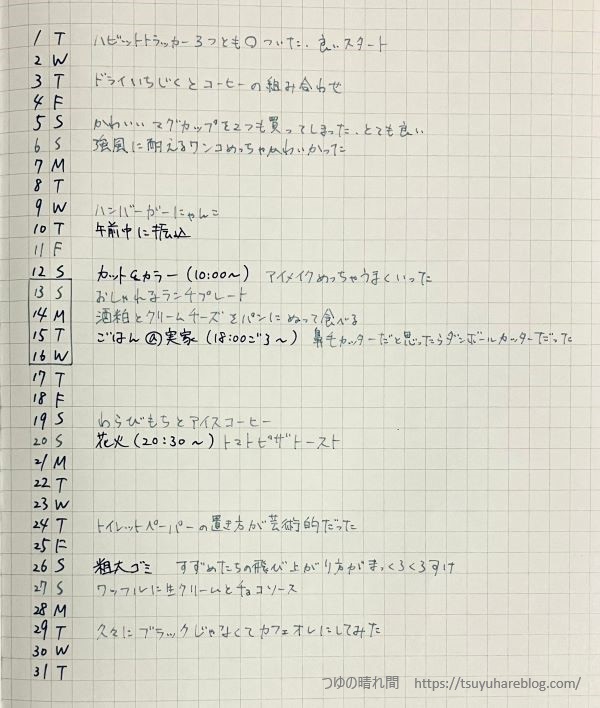 1 T ハビットトラッカー3つとも○ついた、良いスタート
2 W
3 T ドライいちじくとコーヒーの組み合わせ
4 F
5 S かわいいマグカップを2つも買ってしまった、とても良い
6 S 強風に耐えるワンコめっちゃかわいかった
7 M
8 T
9 W ハンバーガーにゃんこ
10 T 午前中に振込
11 F
12 S カット&カラー(10:00〜) アイメイクめっちゃうまくいった
13 S おしゃれなランチプレート
14 M 酒粕とクリームチーズをパンにぬって食べる
15 T ごはん@実家(18:00ごろ〜) 鼻毛カッターだと思ったらダンボールカッターだった
16 W
17 T
18 F
19 S わらびもちとアイスコーヒー
20 S 花火(20:30〜) トマトピザトースト
21 M
22 T
23 W
24 T トイレットペーパーの置き方が芸術的だった
25 F
26 S 粗大ゴミ すずめたちの飛び上がり方がまっくろくろすけ
27 S ワッフルに生クリームとチョコソース
28 M
29 T 久々にブラックじゃなくてカフェオレにしてみた
30 W
31 T
つゆの晴れ間 https://tsuyuhareblog.com/